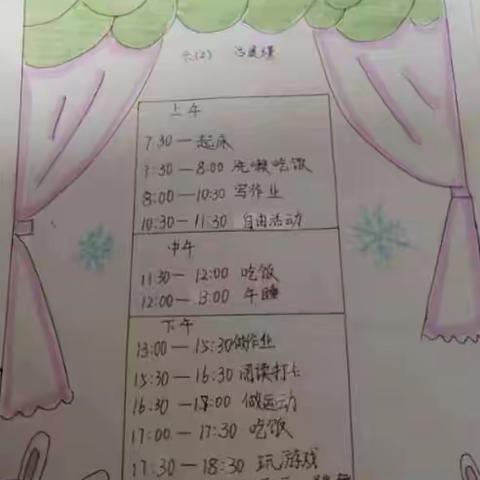 六(2)
上午
7:30—起床
7:30—8:00 洗嗽吃饭
8:00—10:30 写作业
10:30—11:30 自由活动
中午
11:30—12:00 吃饭
12:00—13:00 午睡
下午
13:00—15:30做作业
15:30—16:30 阅读打卡
16:30—17:00 做运动
17:00—17:30 吃饭
17:30—18:30 玩游戏